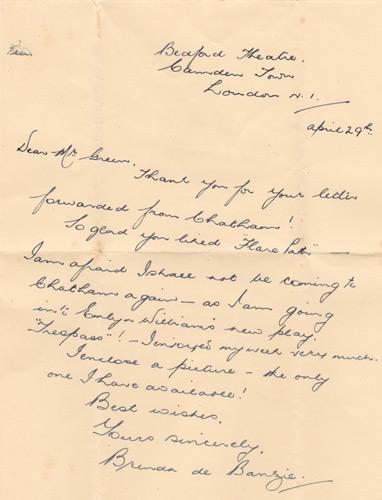 Bedford Theatre.
Camden Town
London N.1.
April 29th.
Dear Mr Green,
Thank you for your letter
forwarded from Chatham!
So glad you liked "Flare Path" —
I am afraid I shall not be coming to
Chatham again — as I am going
into Emlyn Williams's new play.
"Trespass"! — I enjoyed my week very much.
I enclose a picture — the only
one I have available!
Best wishes,
Yours sincerely,
Brenda de Banzie.